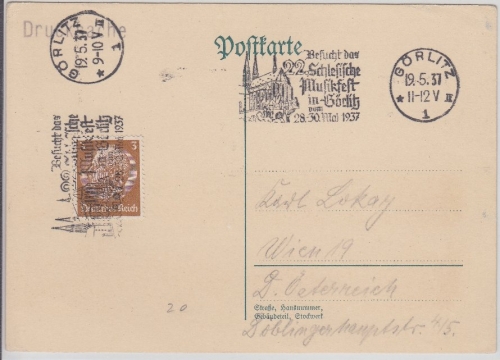 Drucksache
GÖRLITZ
19.5.37
* 9-10 V
1
Besucht das
Musikfest
in Görlitz
3
Deutsches Reich
20
Postkarte
Besucht das
22. Schlesische
Musikfest
in Görlitz
vom
28.-30. Mai 1937
GÖRLITZ
19.5.37
* 11-12 V
1
Karl Lokay
Wien 19
D. Österreich
Straße, Hausnummer,
Gebäudeteil, Stockwerk
Döblingerhauptstr. 4/5.